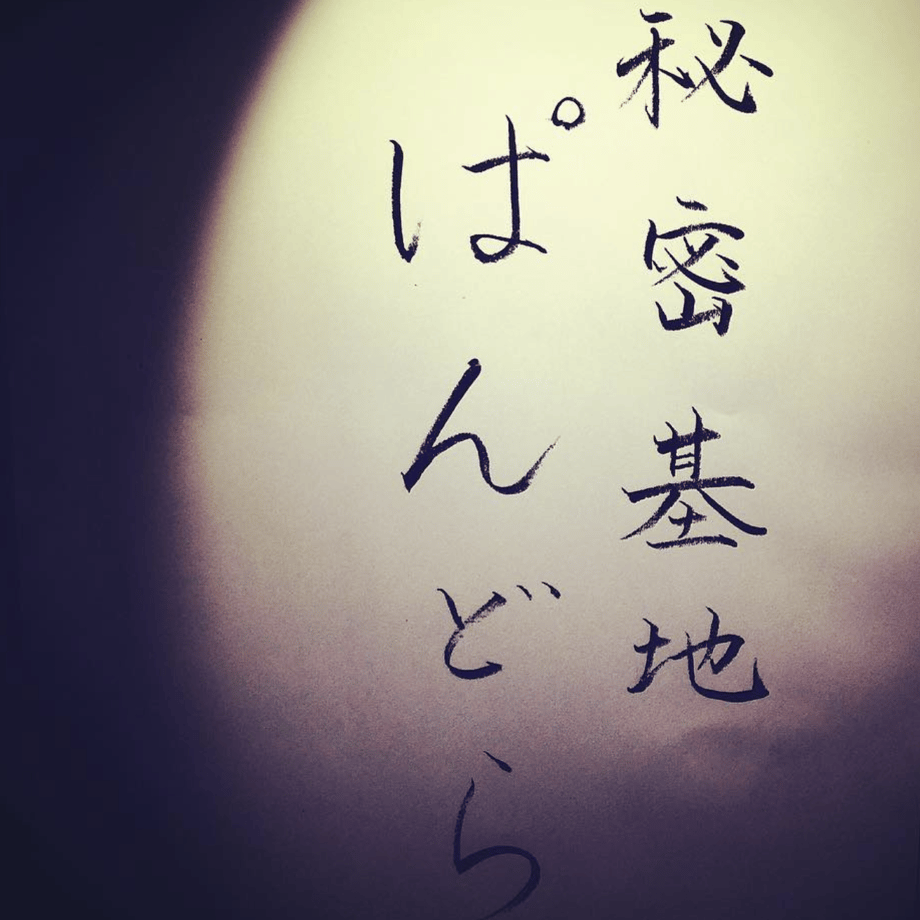 秘密基地
ぱんどら